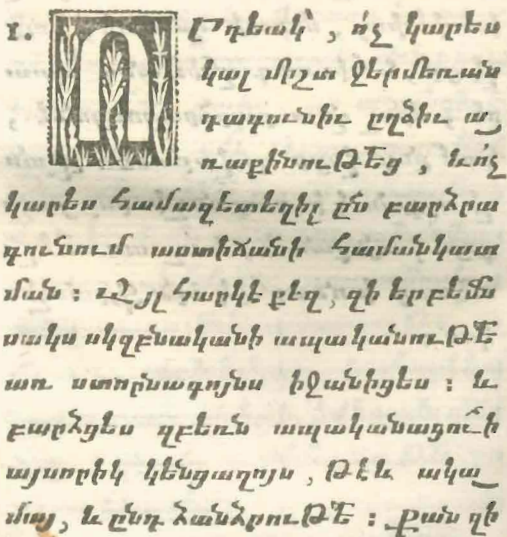 1. Որդեակ՝, ո՛չ կարես
կալ միշտ ջերմեռան
դագունիւ ըղձիւ ա
ռաքինութեց, և ո՛չ
կարես համազետեղիլ ըն բարձրա
գունում աստիճանի համանկատ
ման : Այլ հարկէ քեզ, զի երբեմն
սակս սկզբնականի ապականութե
առ ստորնագոյնս իջանիցես : և
բարձցես զբեռն ապականացուի
այսորիկ կենցաղոյս, թէև ակա_
մայ, և ընդ ձանձրութե : Քանզի